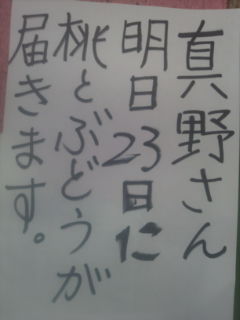 真野さん
明日23日に
桃とぶどうが
届きます。